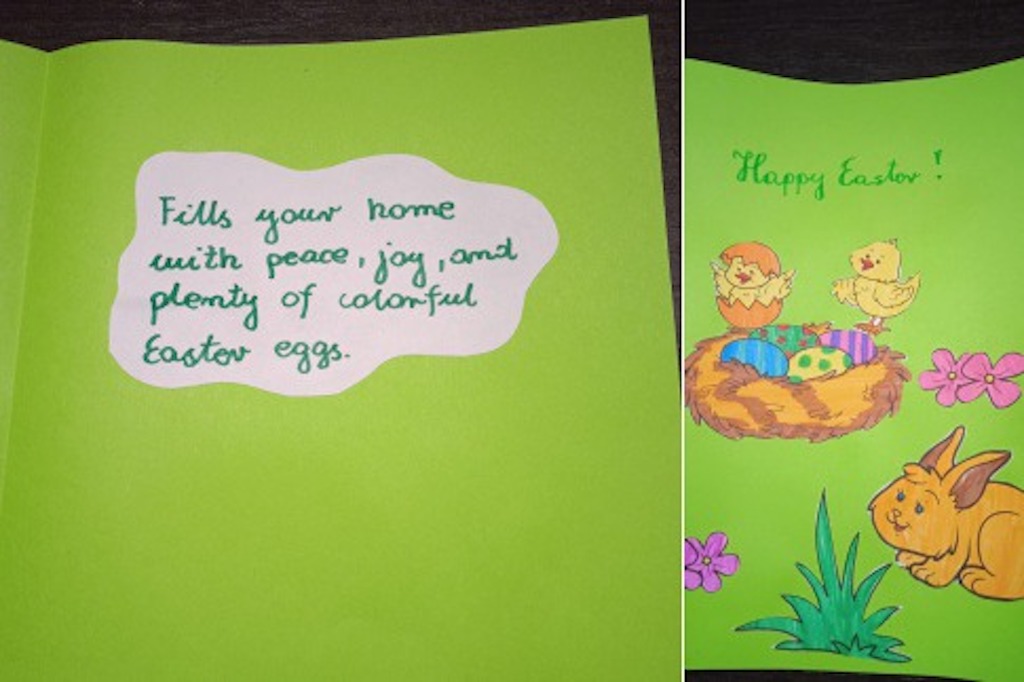 Fills your home
with peace, joy, and
plenty of colorful
Easter eggs.
Happy Easter!